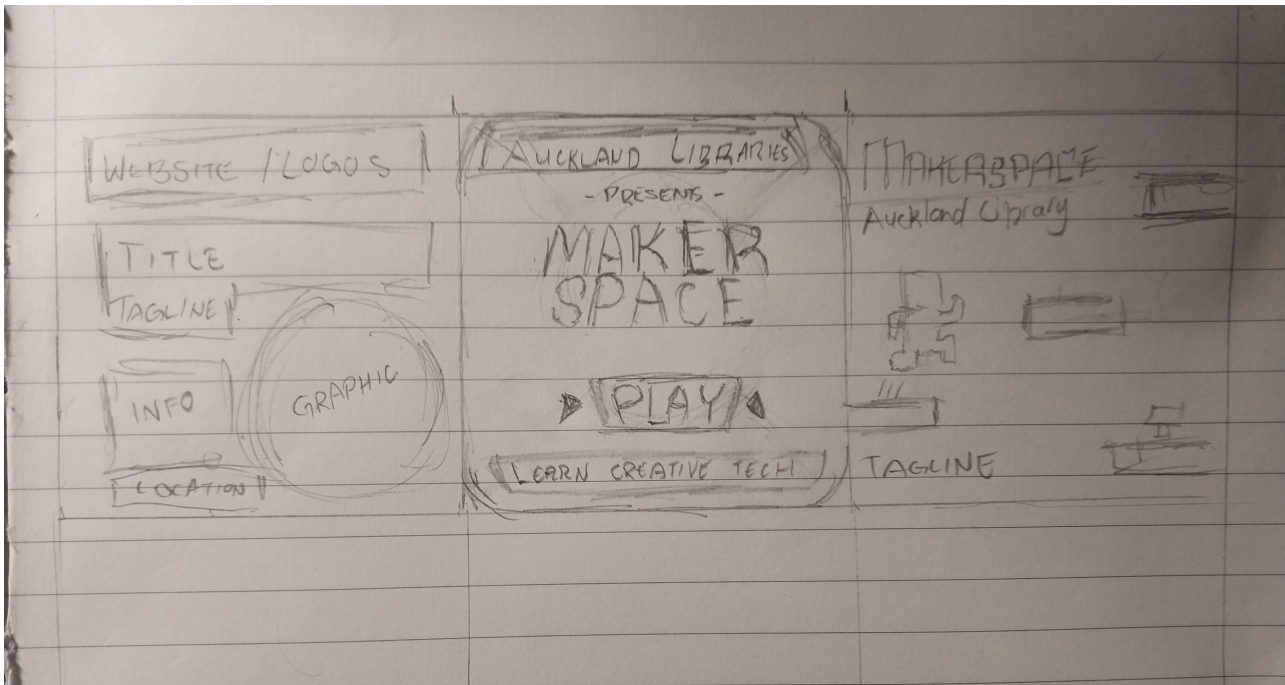 WEBSITE / LOGOS
TITLE
TAGLINE
INFO
GRAPHIC
LOCATION
AUCKLAND LIBRARIES
- PRESENTS -
MAKER
SPACE
PLAY
LEARN CREATIVE TECH
MAKERSPACE
Auckland Library
TAGLINE